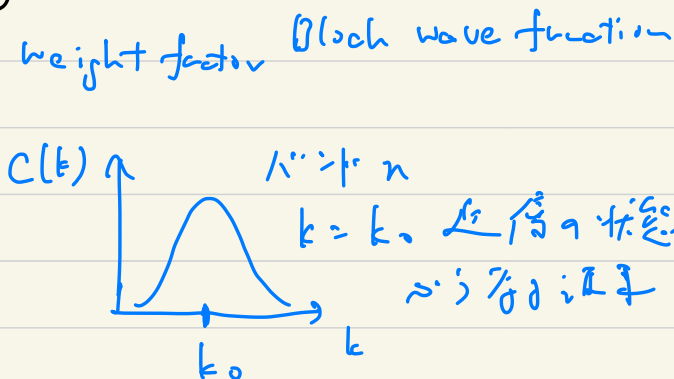 weight factor Bloch wave function
C(k)
バンド n
k = k₀ 近傍の状態
から
k
k₀